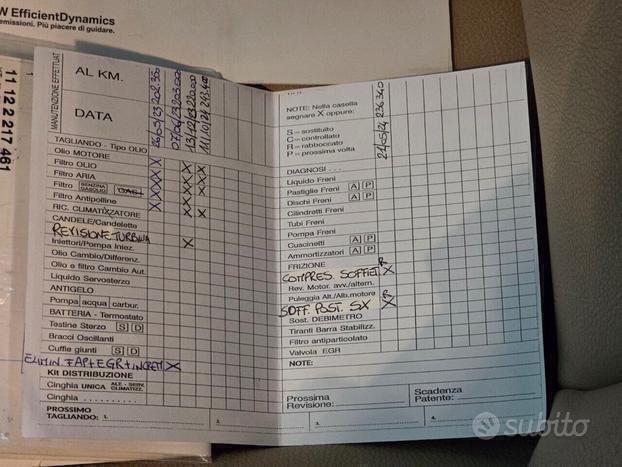 W EfficientDynamics
emissioni. Più piacere di guidare.
11 12 2 217 461
MANUTENZIONE EFFETTUAT.
AL KM.
DATA
26/05/23 202.350
07/06/23 203.000
13/12/23 220.000
11/10/24 243.400
TAGLIANDO - Tipo OLIO
Olio MOTORE X
Filtro OLIO X X X
Filtro ARIA X X X
Filtro BENZINA GASOLIO GAS X X X
Filtro Antipolline X X X
RIC. CLIMATIZZATORE
CANDELE/Candelette
REVISIONE TURBINA
Iniettori/Pompa Iniez. X
Olio Cambio/Differenz.
Olio e filtro Cambio Aut.
Liquido Servosterzo
ANTIGELO
Pompa acqua carbur.
BATTERIA - Termostato
Testine Sterzo S D
Bracci Oscillanti
Cuffie giunti S D
ELIMIN. FAP+EGR+ X
Kit DISTRIBUZIONE
Cinghia UNICA ALT. - SERV. CLIMATIZZ.
Cinghia ..........
PROSSIMO
TAGLIANDO: 1. 2. 3. 4.
NOTE: Nella casella
segnare X oppure:
S = sostituito
C = controllato
R = rabboccato
P = prossima volta
21/05/24 236.340
DIAGNOSI - ...
Liquido Freni
Pastiglie Freni A P
Dischi Freni A P
Cilindretti Freni
Tubi Freni
Pompa Freni
Cuscinetti A P
Ammortizzatori A P
FRIZIONE
COMPRES. SOFFIET. R X
Rev. Motor. avv./altern.
Puleggia Alt./Alb.motore R
SOFF. POST. SX X
Sost. DEBIMETRO
Tiranti Barra Stabilizz.
Filtro antiparticolato
Valvola EGR
NOTE:
Prossima
Revisione:
Scadenza
Patente:
subito